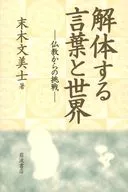 解体する
言葉と世界
―仏教からの挑戦―
末木文美士
著
岩波書店